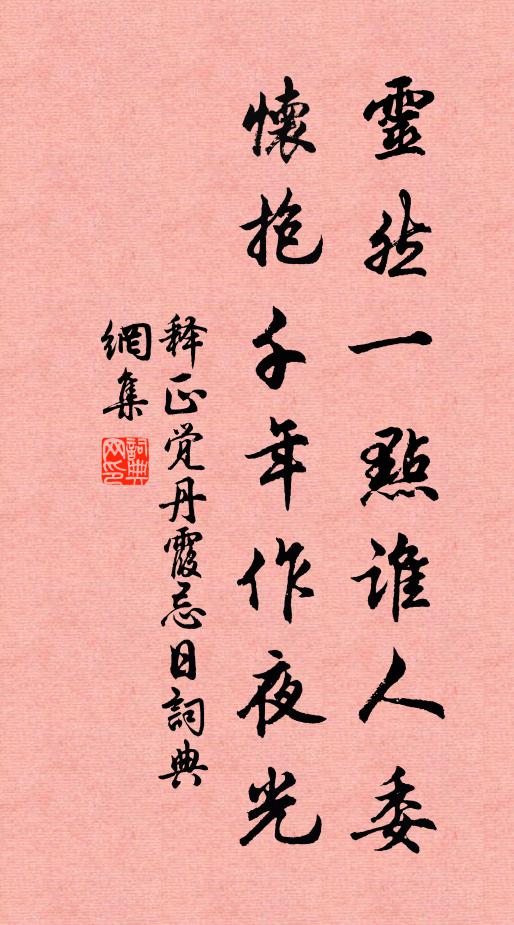 靈然一點誰人委
懷抱千年作夜光
释正觉丹霞忌日詞典
網集
詞典
网印